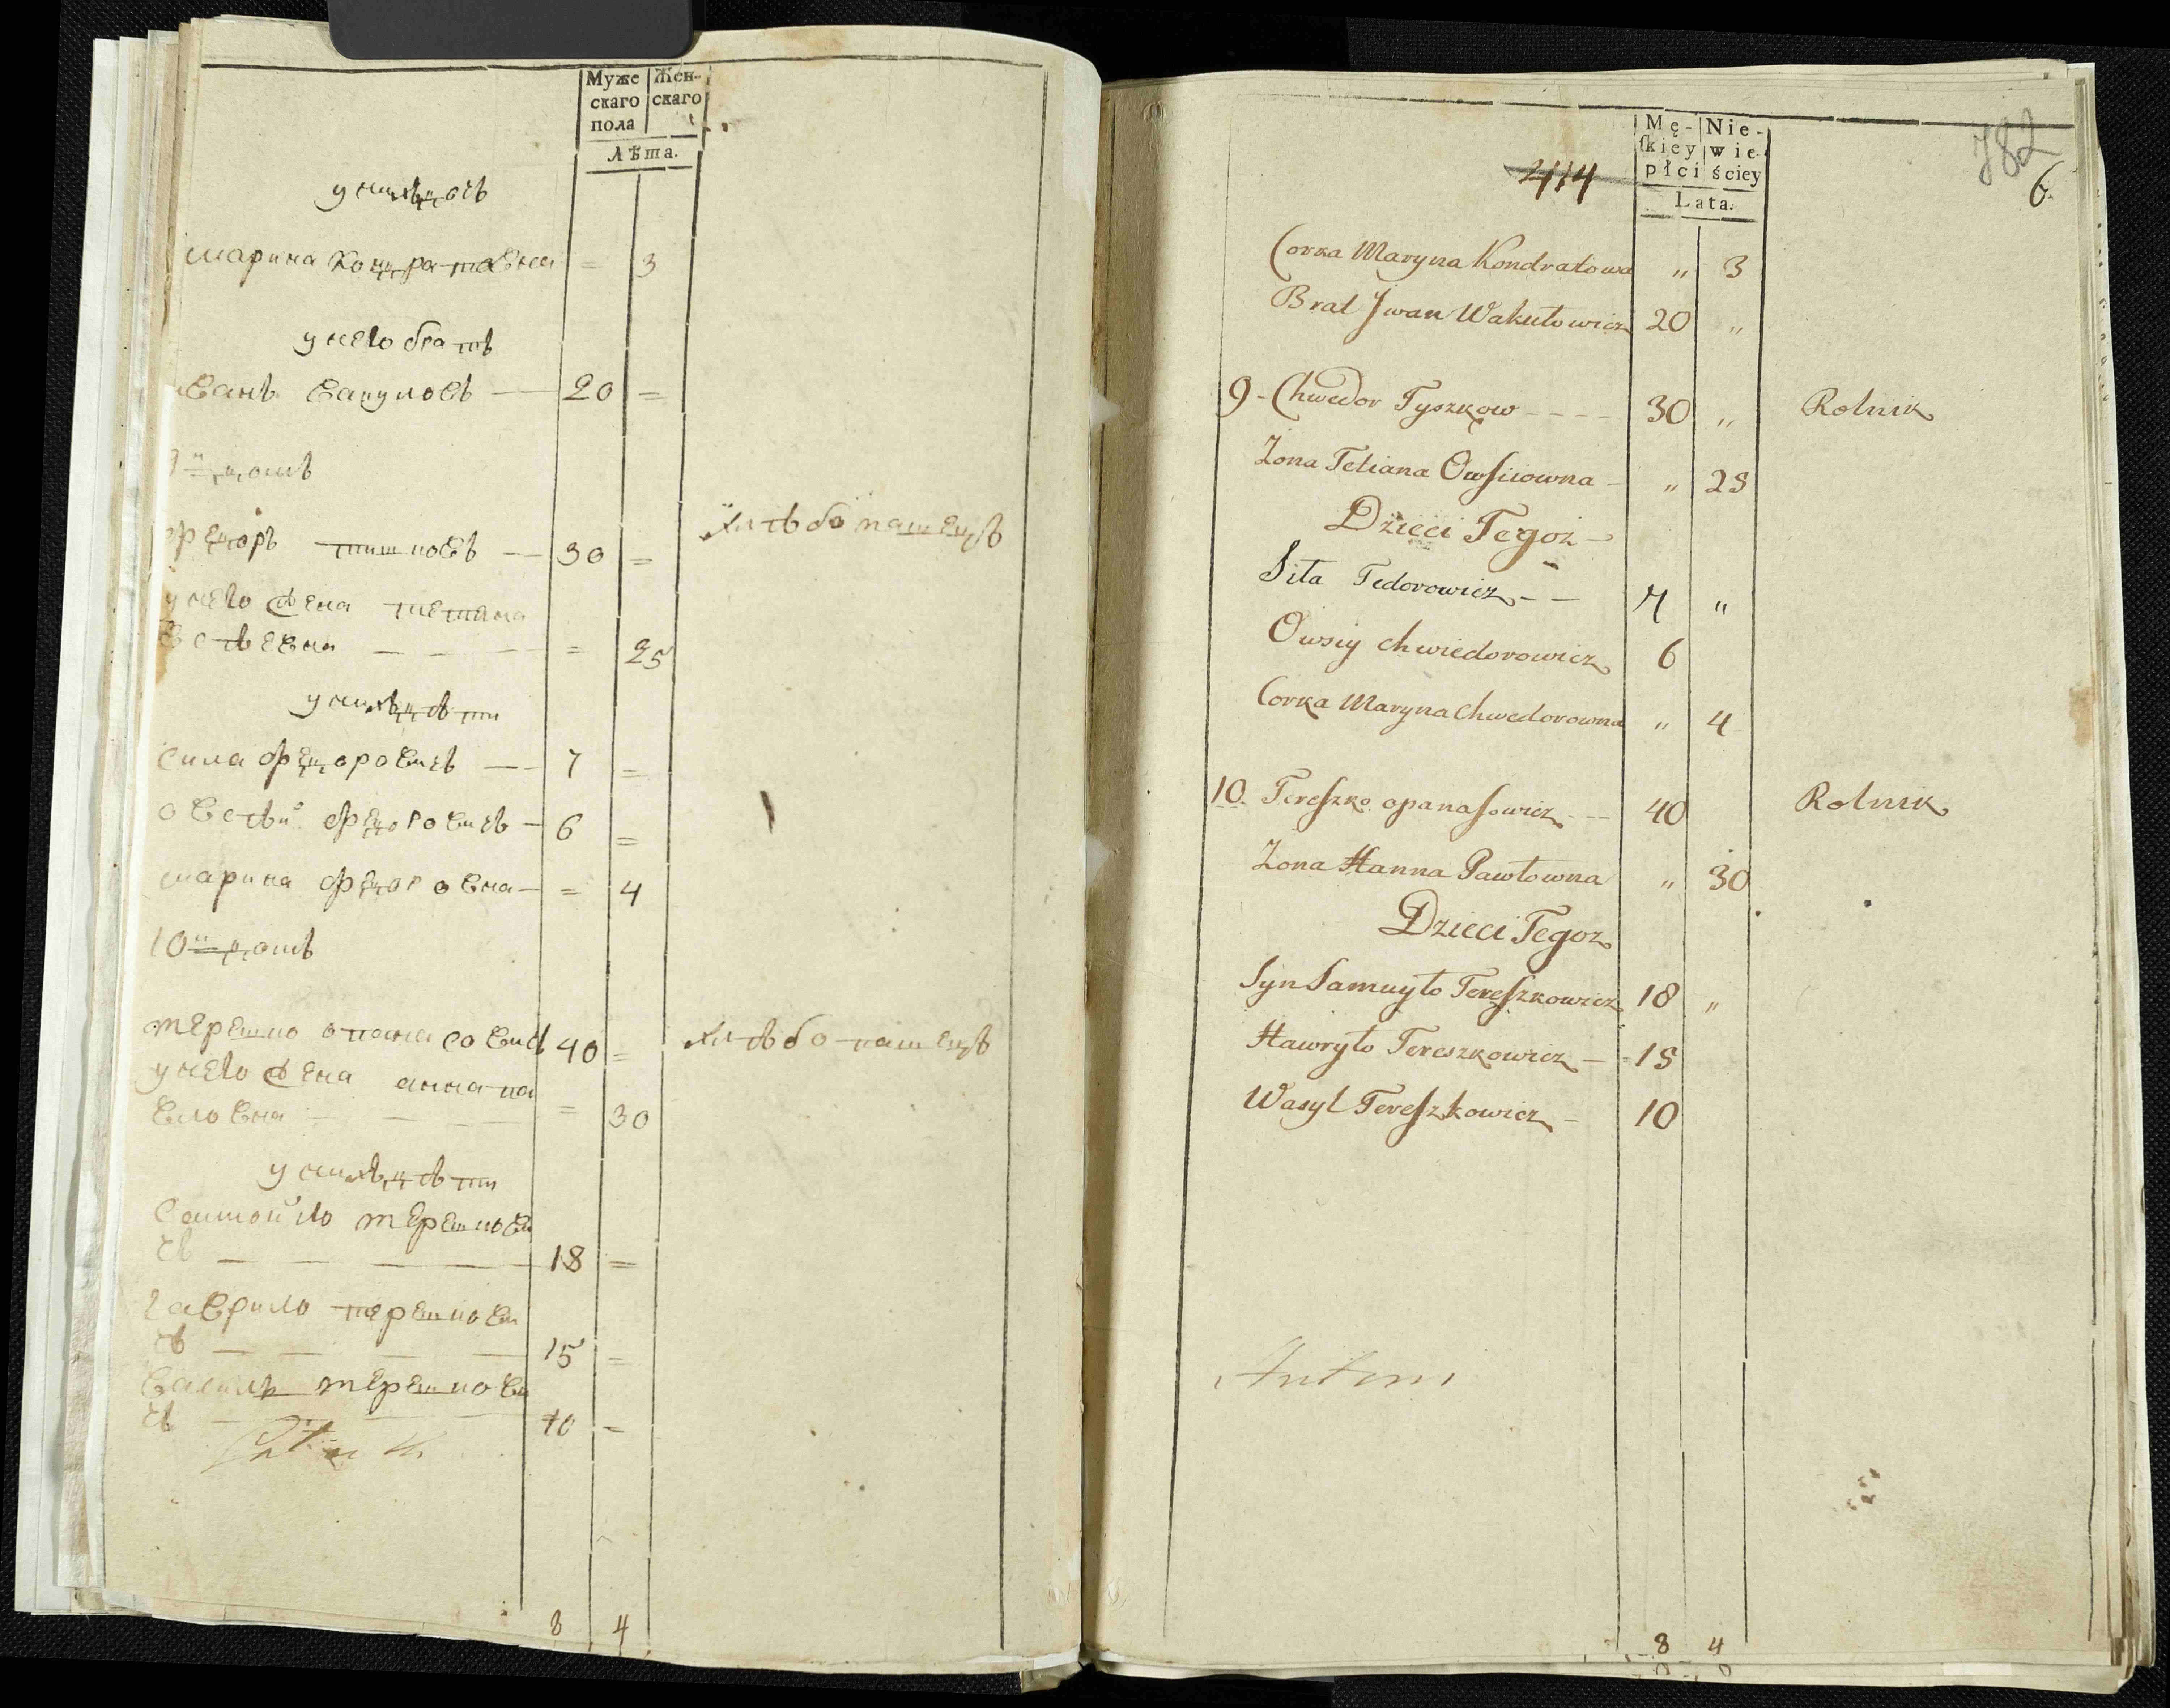 Муже
скаго
пола
Жен-
скаго
Лѣта.
у нихъ дочь
марина кондратовна = 3
у него братъ
иванъ вакуловъ — 20 =
9й домъ
федоръ тишковъ — 30 = хлѣбопашецъ
у него жена тетяна
евсѣевна — — — = 25
у нихъ дѣти
сила федоровичъ — 7 =
овсѣй федоровичъ — 6 =
марина федоровна — = 4
10й домъ
терешко опанасовичъ 40 = хлѣбопашецъ
у него жена анна па
вловна — — — = 30
у нихъ дѣти
самойло терешкови
чъ — — — — 18 =
гаврило терешкови
чъ — — — — 15 =
василь терешкови
чъ — — — 10 =
8 4
414
Mę-
ſkiey
płci
Nie-
wie-
ściey
Lata.
782
6.
Corka Maryna Kondratowa „ 3
Brat Jwan Wakułowicz 20 „
9 - Chwedor Tyszkow - - - - 30 „ Rolnik
Zona Tetiana Owſiiowna - „ 25
Dzieci Tegoż -
Siła Fedorowicz - - 7 „
Owsiy Chwiedorowicz 6
Corka Maryna Chwedorowna „ 4
10. Tereſzko opanaſowicz - - - 40 Rolnik
Zona Hanna Pawłowna „ 30
Dzieci Tegoz
Syn Samuyło Tereſzkowicz 18 „
Hawryło Tereszkowicz - - 15
Wasyl Tereſzkowicz - 10
Antoni
8 4